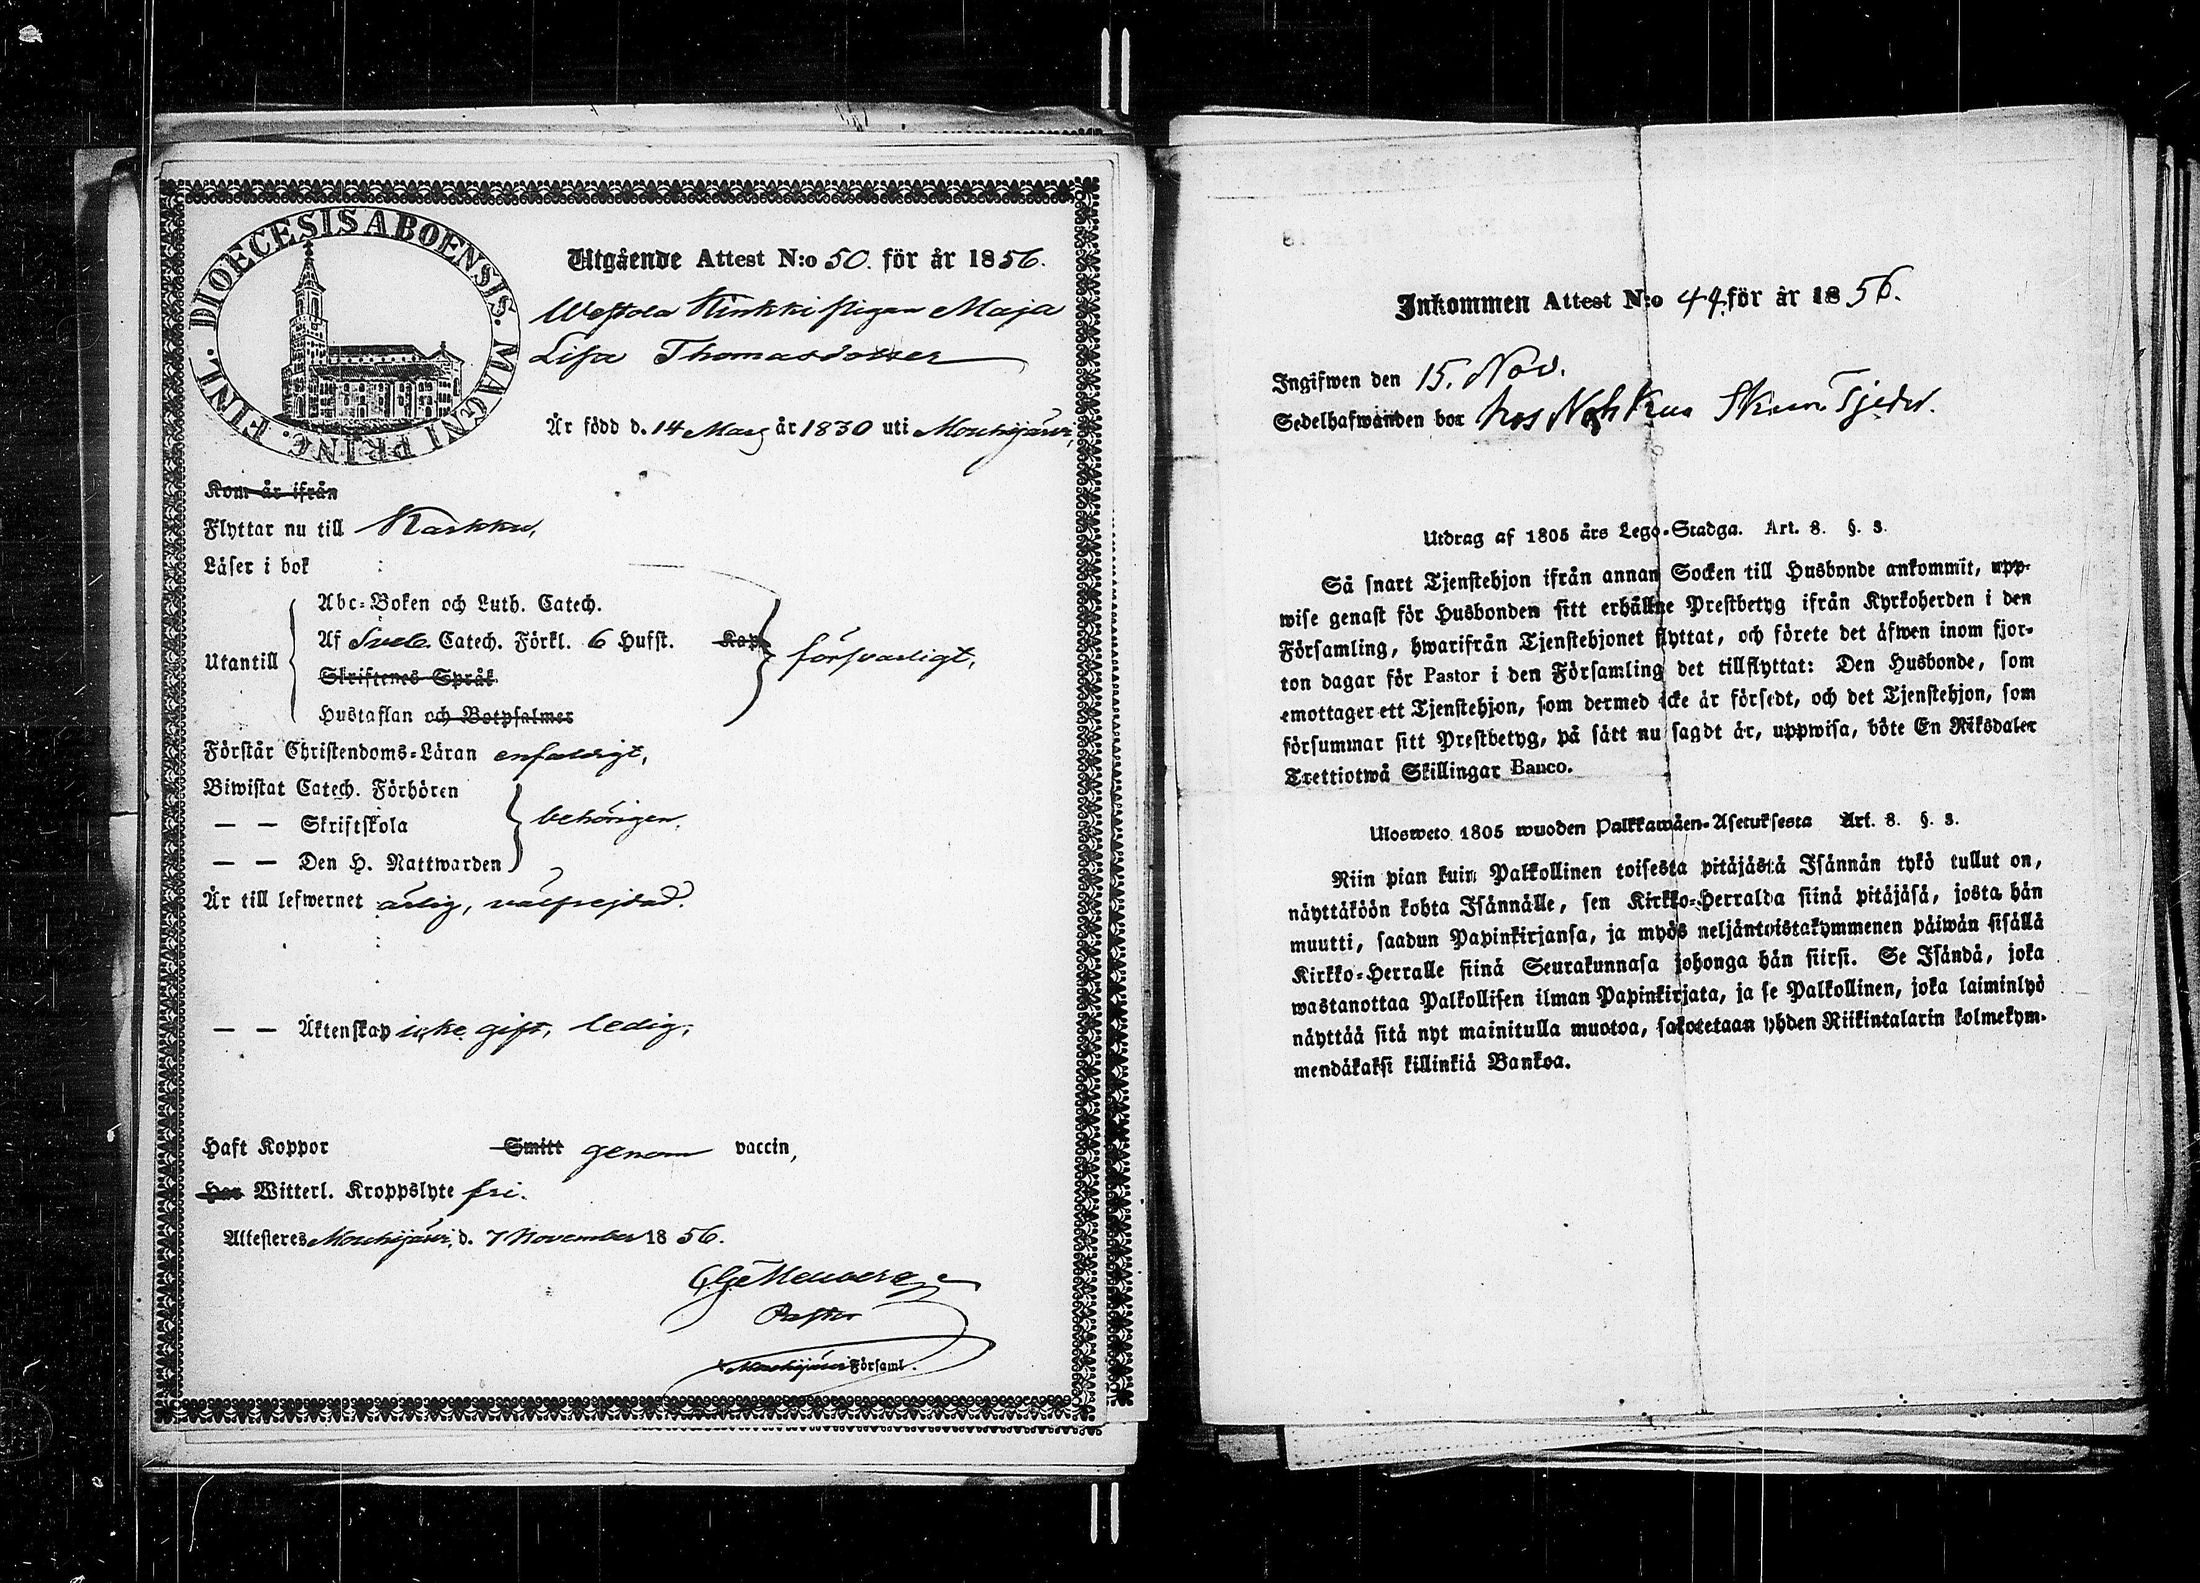 DIOECESIS ABOENSIS. MAGNI PRINC. FINL.
Utgående Attest N:o 50. för år 1856.
Westola Kinkki pigan Maja
Lisa Thomasdotter
Är född d. 14 Mars år 1830 uti Mouhijärvi,
Kom år ifrån
Flyttar nu till Karkku,
Läser i bok
Utantill
Abc-Boken och Luth. Catech.
Af Sveb. Catech. Förkl. 6 Hufst. Kap.
Skriftenes Språk
Hustaflan och Botpsalmer
försvarligt,
Förstår Christendoms-Läran enfaldigt,
Biwistat Catech. Förhören
— — Skriftskola
— — Den H. Nattwarden
behörigen,
Är till lefwernet ärlig, välfrejdad.
— — Äktenskap icke gift, ledig,
Haft Koppor Smitt genom vaccin,
Har Witterl. Kroppslyte fri.
Attesteras Mouhijärvi, d. 7 November 1856.
Pastor
i Mouhijärvi Församl.
Inkommen Attest N:o 44 för år 1856.
Ingifwen den 15. Nov.
Sedelhafwanden bor hos
Utdrag af 1805 års Lego-Stadga. Art. 8. §. 3.
Så snart Tjenstehjon ifrån annan Socken till Husbonde ankommit, upp-
wise genast för Husbonden sitt erhållne Prestbetyg ifrån Kyrkoherden i den
Församling, hwarifrån Tjenstehjonet flyttat, och förete det äfwen inom fjor-
ton dagar för Pastor i den Församling det tillflyttat: Den Husbonde, som
emottager ett Tjenstehjon, som dermed icke är försedt, och det Tjenstehjon, som
försummar sitt Prestbetyg, på sätt nu sagdt är, uppwisa, böte En Riksdaler
Trettiotwå Skillingar Banco.
Ulosweto 1805 wuoden Palkkawäen-Asetuksesta Art. 8. §. 3.
Niin pian kuin Palkollinen toisesta pitäjästä Isännän tykö tullut on,
näyttäköön kohta Isännälle, sen Kirkko-Herralda siinä pitäjäsä, josta hän
muutti, saadun Papinkirjansa, ja myös neljäntoistakymmenen päiwän sisällä
Kirkko-Herralle siinä Seurakunnasa johonga hän siirsi. Se Isändä, joka
wastanottaa Palkollisen ilman Papinkirjata, ja se Palkollinen, joka laiminlyö
näyttää sitä nyt mainitulla muotoa, sakotetaan yhden Riikintalarin kolmekym-
mendäkaksi killinkiä Bankoa.